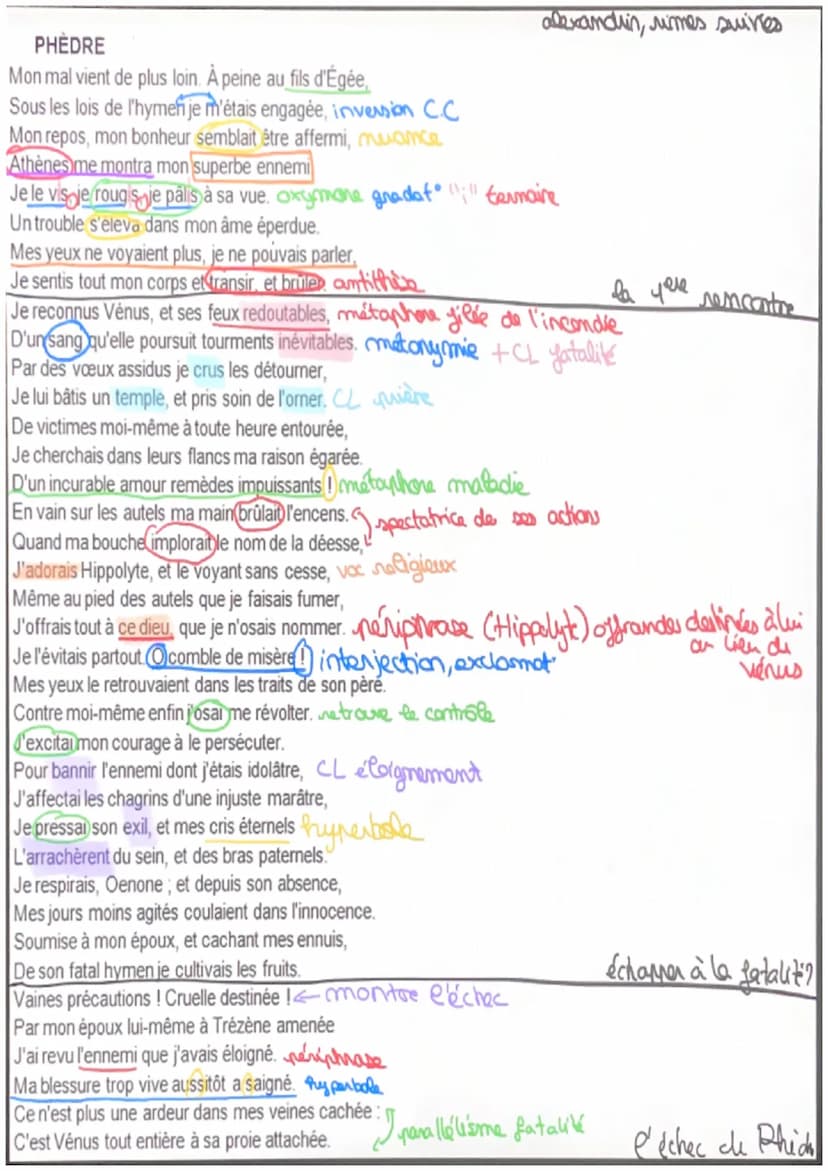 alexandrin, rimes suivies
PHÈDRE
Mon mal vient de plus loin. À peine au fils d'Égée,
Sous les lois de l'hymen je m'étais engagée, inversion C.C
Mon repos, mon bonheur semblait être affermi, nuance
Athènes me montra mon superbe ennemi
Je le vis, je rougis, je pâlis à sa vue. oxymore gradat° "i" ternaire
Un trouble s'éleva dans mon âme éperdue.
Mes yeux ne voyaient plus, je ne pouvais parler,
Je sentis tout mon corps et transir, et brûler. antithèse
la 1ere rencontre
Je reconnus Vénus, et ses feux redoutables, métaphore filée de l'incendie
D'un sang qu'elle poursuit tourments inévitables. métonymie + CL fatalité
Par des vœux assidus je crus les détourner,
Je lui bâtis un temple, et pris soin de l'orner. CL prière
De victimes moi-même à toute heure entourée,
Je cherchais dans leurs flancs ma raison égarée.
D'un incurable amour remèdes impuissants ! métaphore maladie
En vain sur les autels ma main brûlait l'encens. spectatrice de ses actions
Quand ma bouche implorait le nom de la déesse,
J'adorais Hippolyte, et le voyant sans cesse, voc religieux
Même au pied des autels que je faisais fumer,
J'offrais tout à ce dieu, que je n'osais nommer. périphrase (Hippolyt) offrandes destinées à lui
au lieu de
Vénus
Je l'évitais partout. Ô comble de misère ! interjection, exclamat°
Mes yeux le retrouvaient dans les traits de son père.
Contre moi-même enfin j'osai me révolter. retrouve le contrôle
J'excitai mon courage à le persécuter.
Pour bannir l'ennemi dont j'étais idolâtre, CL éloignement
J'affectai les chagrins d'une injuste marâtre,
Je pressai son exil, et mes cris éternels hyperbole
L'arrachèrent du sein, et des bras paternels.
Je respirais, Oenone ; et depuis son absence,
Mes jours moins agités coulaient dans l'innocence.
Soumise à mon époux, et cachant mes ennuis,
De son fatal hymen je cultivais les fruits.
échapper à la fatalité?
Vaines précautions ! Cruelle destinée ! ← montre l'échec
Par mon époux lui-même à Trézène amenée
J'ai revu l'ennemi que j'avais éloigné. périphrase
Ma blessure trop vive aussitôt a saigné. hyperbole
Ce n'est plus une ardeur dans mes veines cachée :
C'est Vénus tout entière à sa proie attachée. parallélisme fatalité
l'échec de Phèd